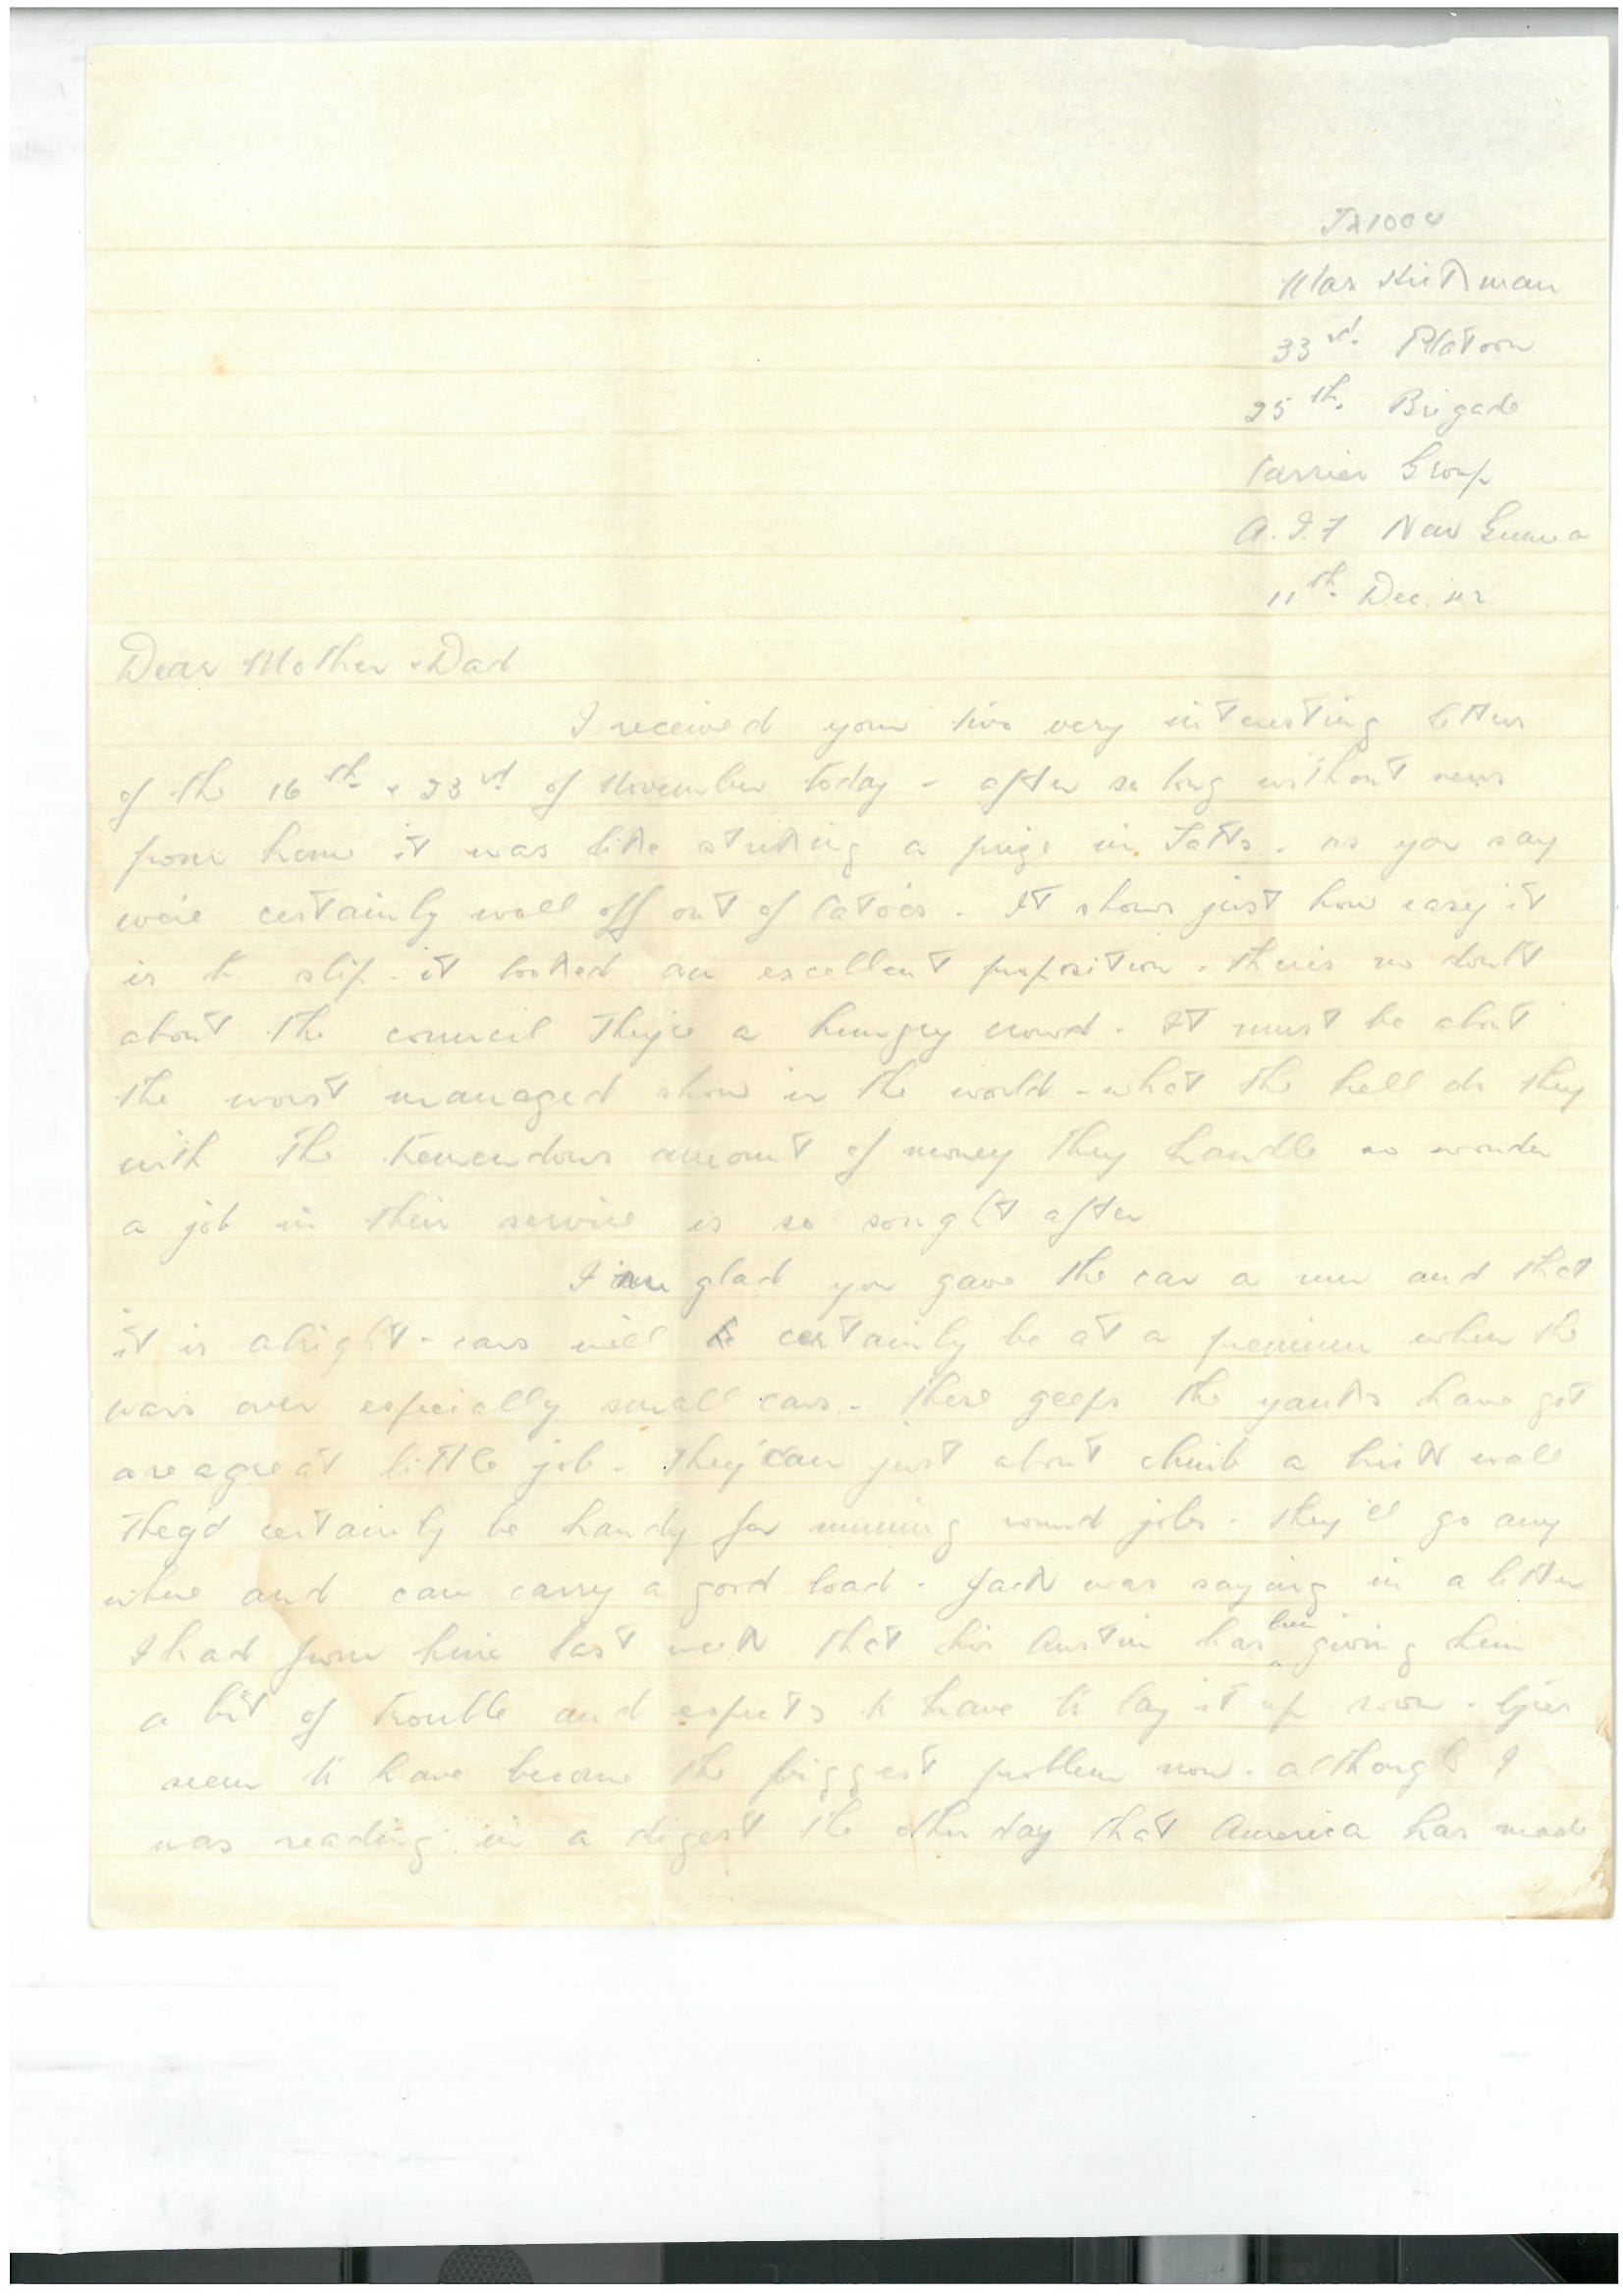 TX1004
Max Kirkman
33rd. Platoon
25th. Brigade
Carrier Group
A.I.F New Guinea
11th. Dec. 42
Dear Mother & Dad
I received your two very interesting letters
of the 16th & 23rd of November today - after so long without news
from home it was like striking a prize in Tatts - as you say
we're certainly well off out of . It shows just how easy it
is to slip - it looked an excellent proposition - there's no doubt
about the council they're a hungry crowd - It must be about
the worst managed show in the world - what the hell do they
with the tremendous amount of money they handle no wonder
a job in their service is so sought after
I am glad you gave the car a run and that
it is alright - cars will certainly be at a premium when the
wars over especially small cars - these geeps the yanks have got
are a great little job - they can just about climb a brick wall
They'd certainly be handy for running round jobs - they'll go any
where and can carry a good load - Jack was saying in a letter
I had from him last week that his Austin has been giving him
a bit of trouble and expects to have to lay it up soon - tyres
seem to have become the biggest problem now - although I
was reading in a digest the other day that America has made